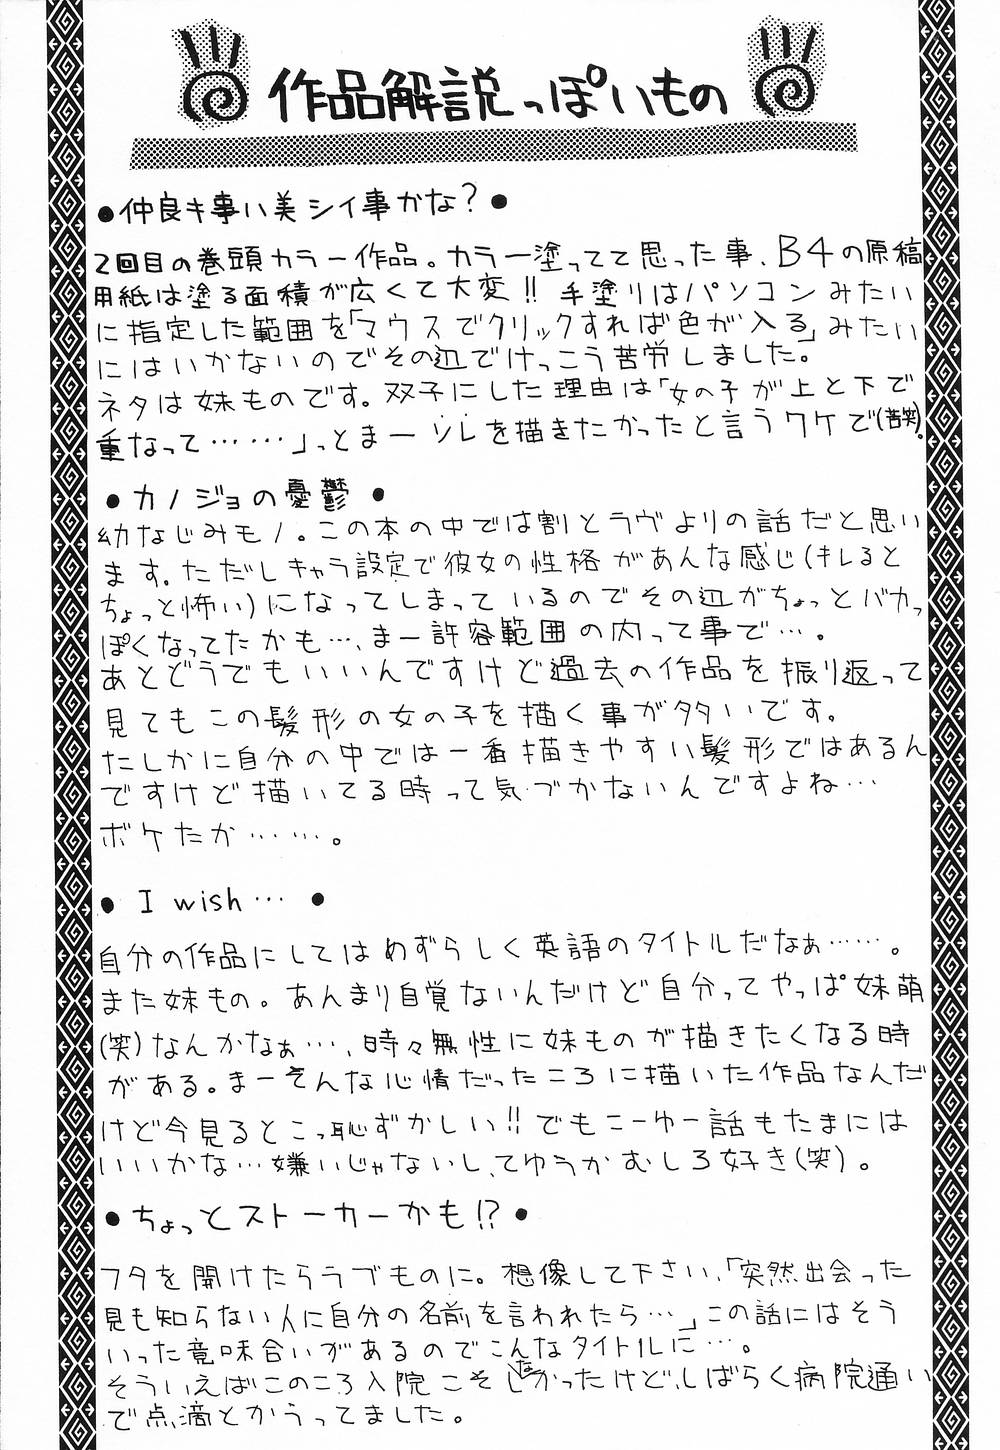 作品解説っぽいもの
●仲良キ事ハ美シイ事かな?●
2回目の巻頭カラー作品。カラー塗ってて思った事、B4の原稿
用紙は塗る面積が広くて大変!! 手塗りはパソコンみたい
に指定した範囲を「マウスでクリックすれば色が入る」みたい
にはいかないのでその辺でけっこう苦労しました。
ネタは妹ものです。双子にした理由は「女の子が上と下で
重なって……」っとまーソレを描きたかったと言うワケで(苦笑)。
●カノジョの憂鬱●
幼なじみモノ。この本の中では割とラヴよりの話だと思い
ます。ただしキャラ設定で彼女の性格があんな感じ(キレると
ちょっと怖い)になってしまっているのでその辺がちょっとバカっ
ぽくなってたかも…、まー許容範囲の内って事で…。
あとどうでもいいんですけど過去の作品を振り返って
見てもこの髪形の女の子を描く事が多いです。
たしかに自分の中では一番描きやすい髪形ではあるん
ですけど描いてる時って気づかないんですよね…
ボケたか……。
●I wish…●
自分の作品にしてはめずらしく英語のタイトルだなぁ……。
また妹もの。あんまり自覚ないんだけど自分ってやっぱ妹萌
(笑)なんかなぁ…、時々無性に妹ものが描きたくなる時
がある。まーそんな心情だったころに描いた作品なんだ
けど今見るとこっ恥ずかしい!!でもこーゆー話もたまには
いいかな…嫌いじゃないし、てゆうかむしろ好き(笑)。
●ちょっとストーカーかも!?●
フタを開けたらラブものに。想像して下さい、「突然出会った
見も知らない人に自分の名前を言われたら…」この話にはそう
いった意味合いがあるのでこんなタイトルに…。
そういえばこのころ入院こそしなかったけど、しばらく病院通い
で点滴とかうってました。